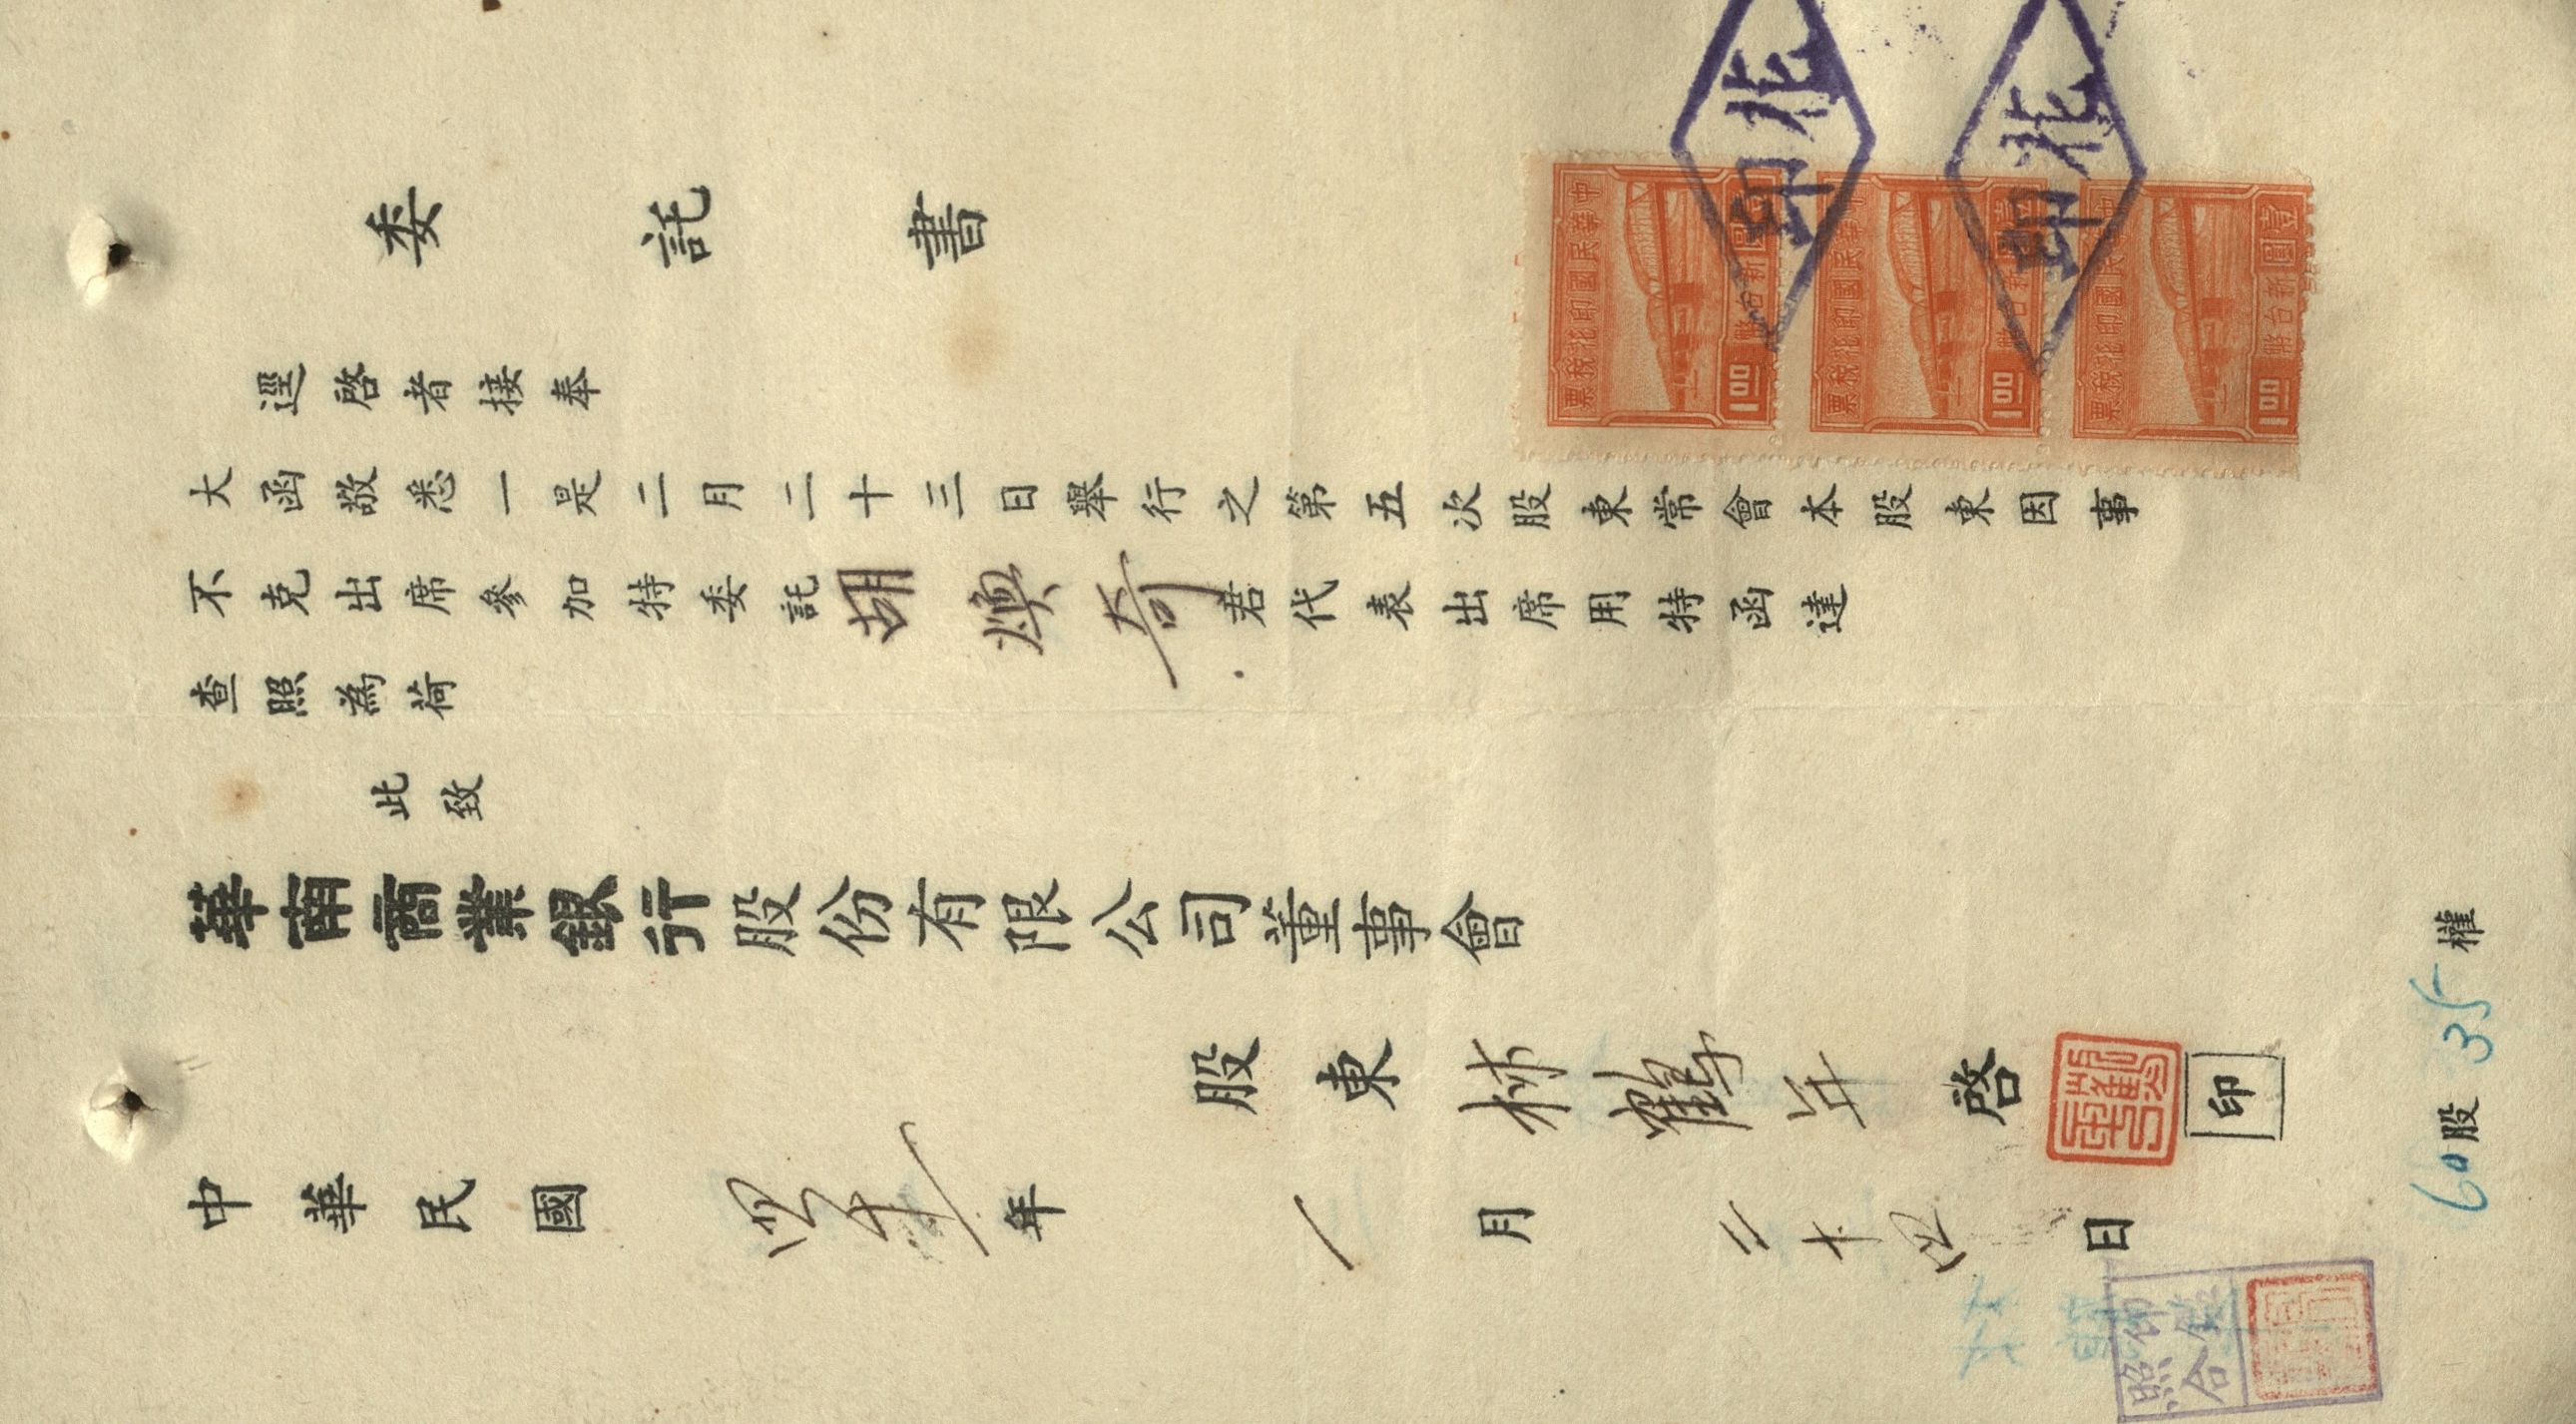 委託書
逕啓者接奉
大函敬悉一是二月二十三日舉行之第五次股東常會本股東因事
不克出席參加特委託胡煥奇君代表出席用特函達
查照為荷
此致
華南商業銀行股份有限公司董事會
股東林鶴年啓 印
中華民國四十一年一月二十四日
60股35權
中華民國印花稅票
壹圓新台幣
1.00
中華民國印花稅票
壹圓新台幣
1.00
中華民國印花稅票
壹圓新台幣
1.00
印花
印花
印鑑
照合